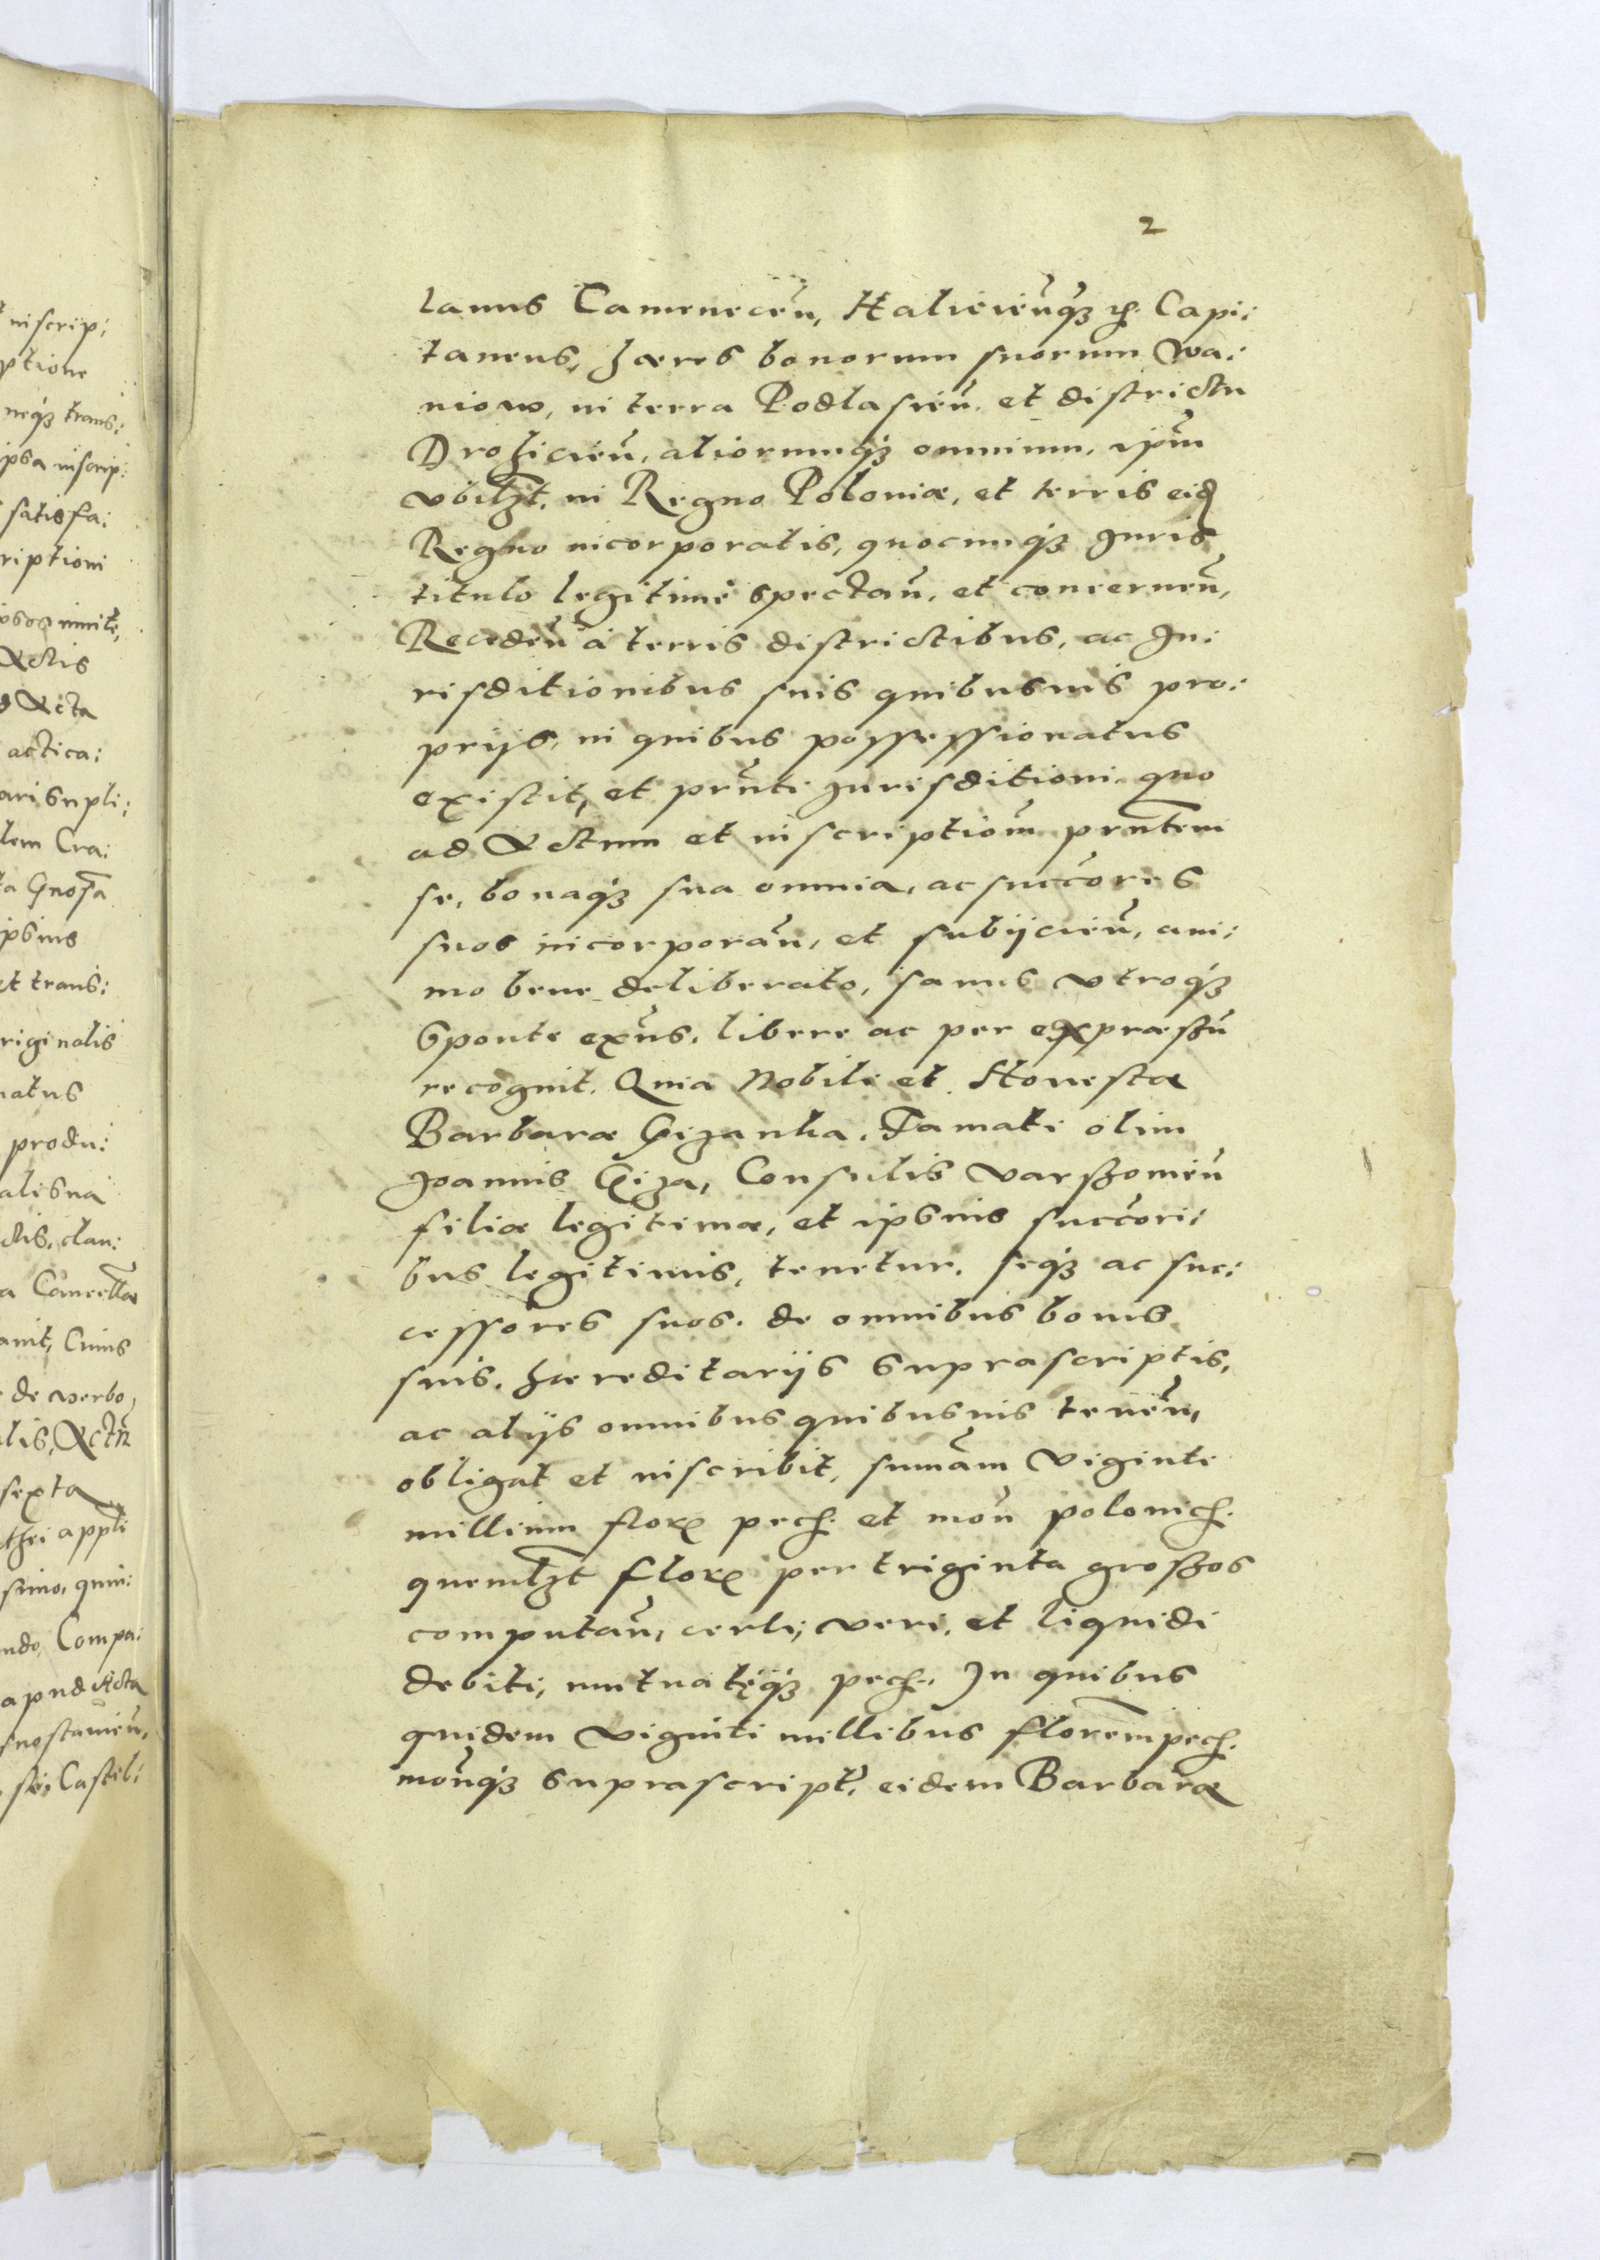 2
lanus Camenecen̄, Halicien̄q₃ &c. Capi:
taneus, hæres bonorum suorum Wa:
niow, in terra Podlasien̄. et districtu
Drohicien̄, aliorumq₃ omnium, ipm̄
vbilz̄t. in Regno Poloniæ, et terris eid
Regno incorporatis, quocunq₃ Juris
titulo legitimè spectan̄, et concernen̄,
Receden̄ à terris districtibus, ac Ju:
risditionibus suis quibusuis pro:
prijs, in quibus possessionatus
existit, et prn̄ti jurisditioni quo
ad Actum et inscriptiom̄ prn̄tem
se, bonaq₃ sua omnia, ac succ̄ores
suos incorporan̄, et subijcien̄, ani:
mo bene deliberato, sanus vtroq₃
sponte exn̄s, libere ac per expræssū
recognit. Quia Nobili et Honestæ
Barbaræ Gizanka, Famati olim
Joannis Giza, Consulis Varssouien̄
filiæ legitimæ, et ipsius succ̄ori:
bus legitimis, tenetur, seq₃ ac suc:
cessores suos, de omnibus bonis
suis, hæreditarijs suprascriptis,
ac alijs omnibus quibusuis tenēn,
obligat et inscribit, sum̄am viginti
millium flor. pech. et mon̄ polonich.
quemlz̄t flor. per triginta grossos
computan̄, certi, veri, et liquidi
debiti, mutuatęq₃ pech., In quibus
quidem viginti millibus florem̄ pech.
mon̄q₃ suprascript̄. eidem Barbaræ